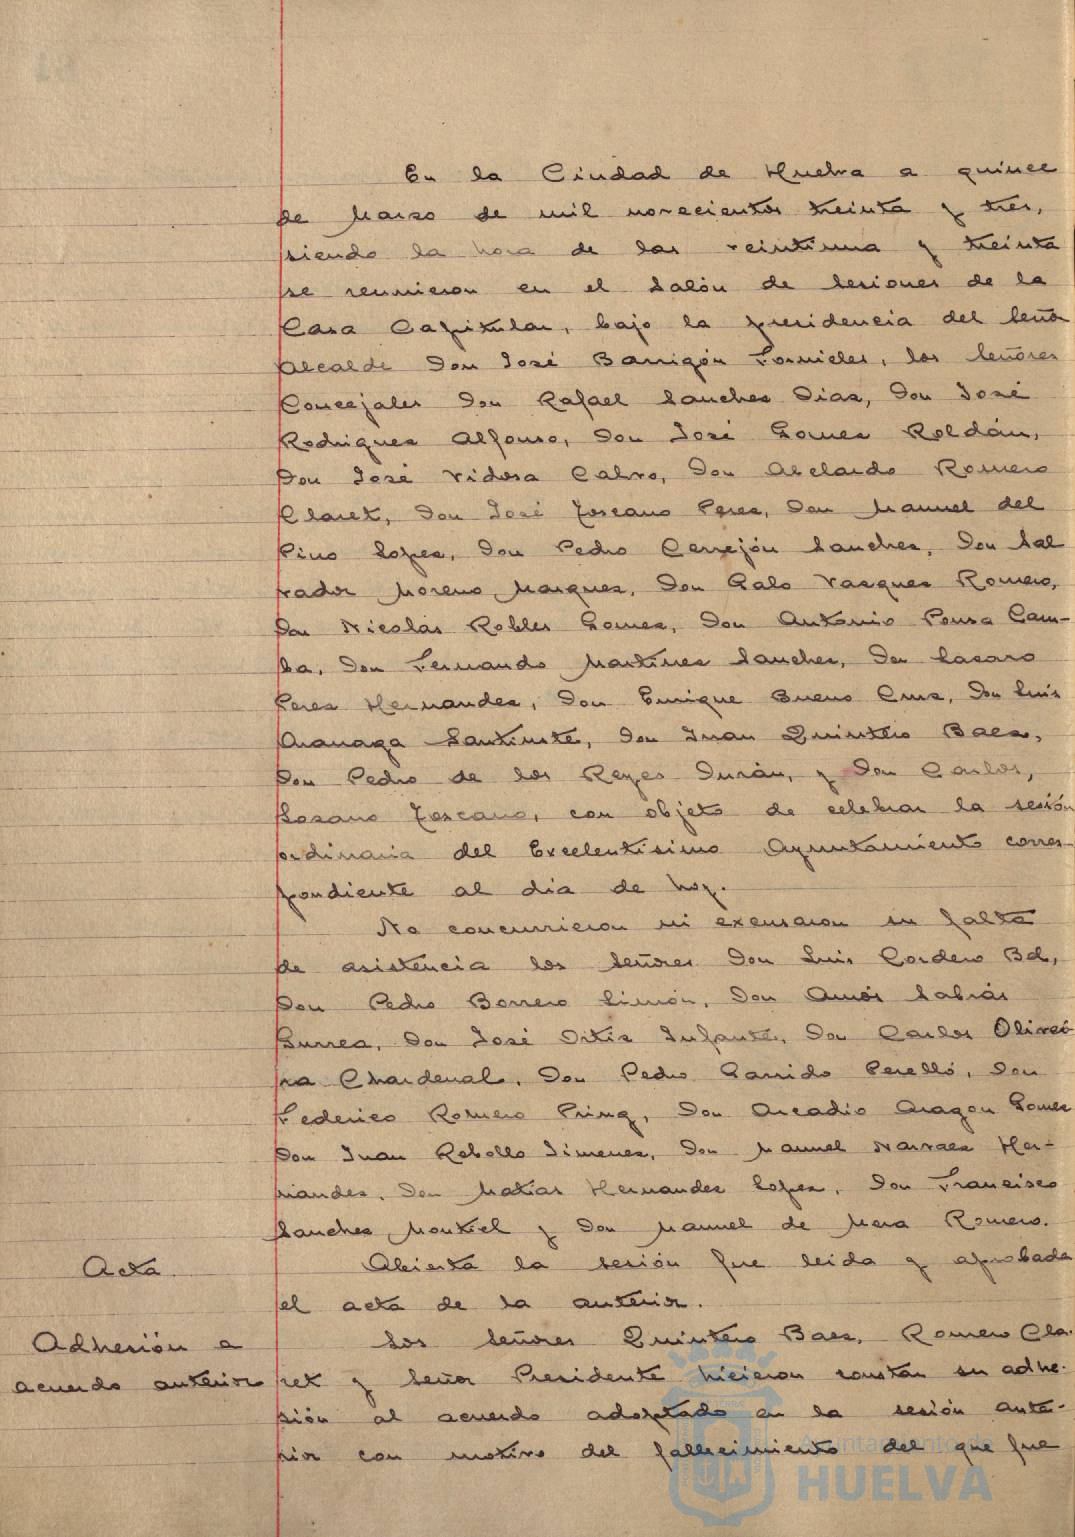 En la Ciudad de Huelva a quince
de Marzo de mil novecientos treinta y tres,
siendo la hora de las veintiuna y treinta
se reunieron en el Salón de Sesiones de la
Casa Capitular, bajo la presidencia del Señor
Alcalde Don José Barrigón Fornieles, los Señores
Concejales Don Rafael Sanchez Diaz, Don José
Rodriguez Alfonso, Don José Gomez Roldán,
Don José Vidosa Calvo, Don Abelardo Romero
Claret, Don José Toscano Perez, Don Manuel del
Pino Lopez, Don Pedro Cerrejón Sanchez, Don Sal
vador Moreno Marquez, Don Galo Vazquez Romero,
Don Nicolás Robles Gomez, Don Antonio Pousa Cam-
ba, Don Fernando Martinez Sanchez, Don Lazaro
Perez Hernandez, Don Enrique Bueno Cruz, Don Luis
Aranaga Santiuste, Don Juan Quintero Baez,
Don Pedro de los Reyes Durán, y Don Carlos,
Lozano Toscano, con objeto de celebrar la sesión
ordinaria del Excelentisimo Ayuntamiento corres-
pondiente al dia de hoy.
No concurrieron ni excusaron su falta
de asistencia los Señores Don Luis Cordero Bel,
Don Pedro Borrero Limón, Don Amós Sabrás
Gurrea, Don José Ortiz Infante, Don Carlos Olivei
ra Chardenal, Don Pedro Garrido Perelló, Don
Federico Romero Pring, Don Arcadio Aragon Gomez
Don Juan Rebollo Jimenez, Don Manuel Narvaez Her-
nandez, Don Matias Hernandez Lopez, Don Francisco
Sanchez Montiel y Don Manuel de Mora Romero.
Acta
Abierta la sesión fue leida y aprobada
el acta de la anterior.
Adhesión a
acuerdo anterior
Los Señores Quintero Baez, Romero Cla-
ret y Señor Presidente hicieron constar su adhe-
sión al acuerdo adoptado en la sesión ante-
rior con motivo del fallecimiento del que fue
Ayuntamiento de
HUELVA